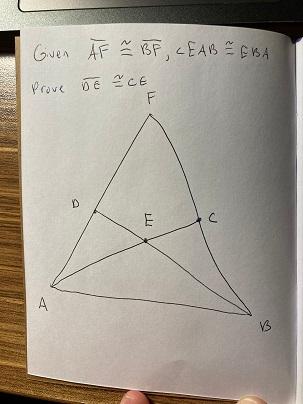 Given AF ≅ BF, ∠EAB ≅ EBA
Prove DE ≅ CE
F
D
E
C
A
B